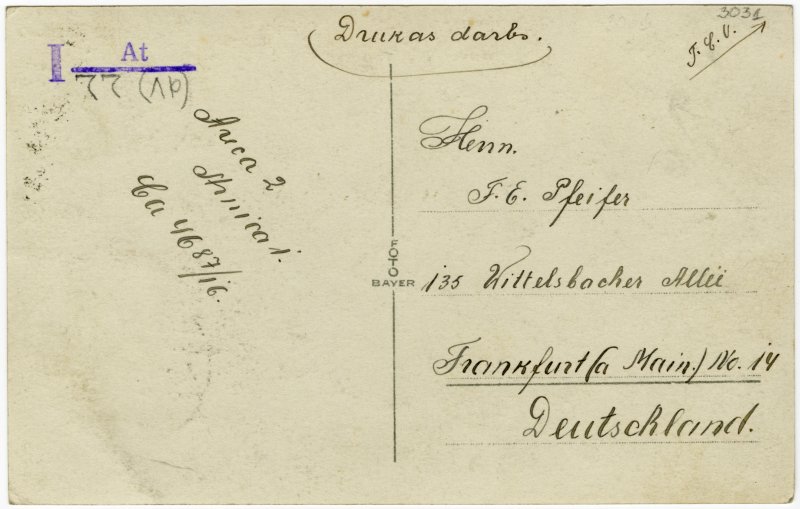 3031
F. E. V.
Drukas darbs.
I At
(av) 22
Area 2
Arnica 1.
Ca 4687/16.
FOTO
BAYER
Herrn.
F. E. Pfeifer
135 Wittelsbacher Allée
Frankfurt (a Main.) No. 14
Deutschland.